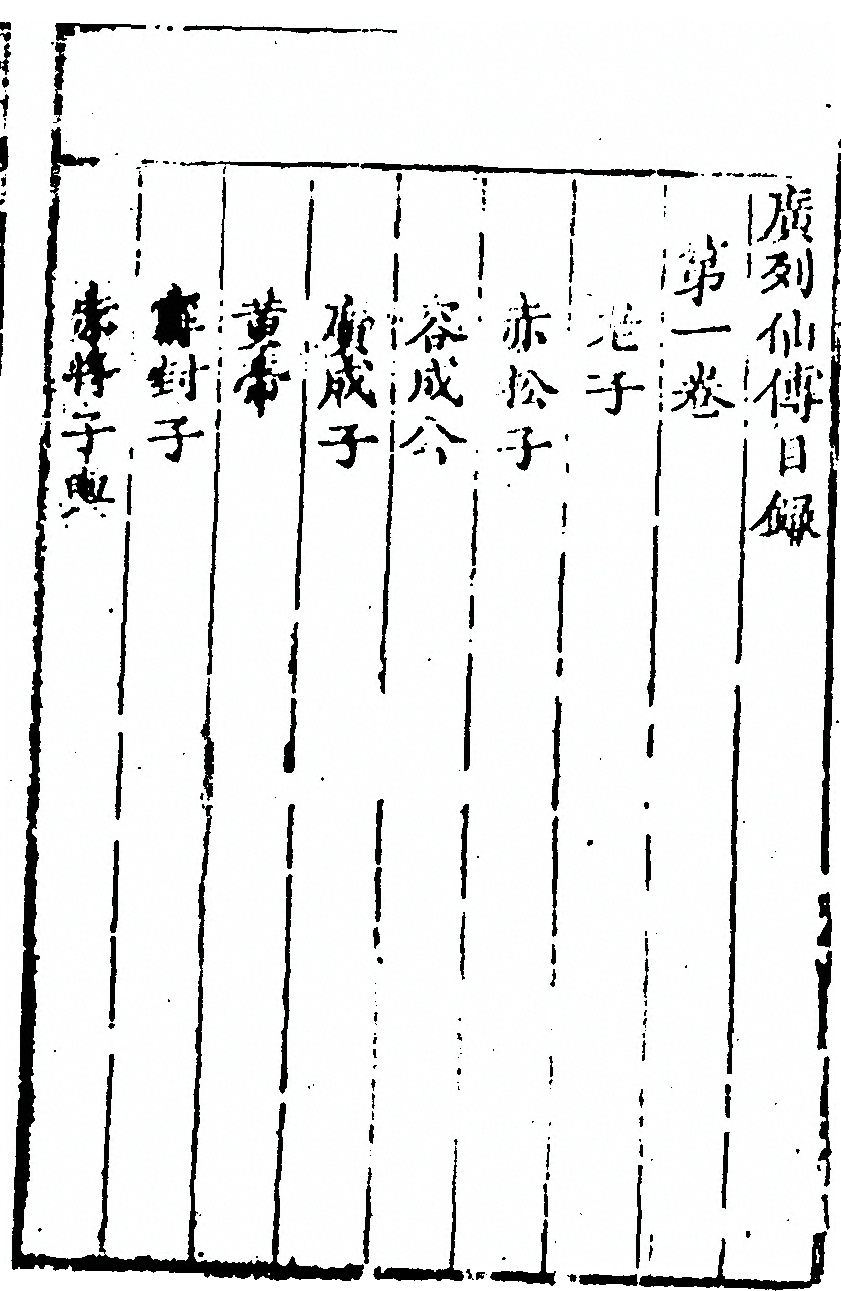 廣列仙傳目錄
第一卷
老子
赤松子
容成公
廣成子
黃帝
甯封子
赤將子輿